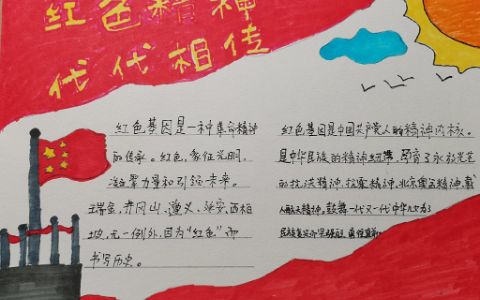 红色精神
代代相传
红色基因是一种革命精神
的传承。红色,象征光明,
凝聚力量和引领未来。
瑞金,井冈山,遵义、延安,西柏
坡,无一例外,因为“红色”而
书写历史。
红色基因是中国共产党人的精神内核。
是中华民族的精神纽带,孕育了永放光芒
的抗洪精神,抗震精神,北京奥运精神,载
人航天精神,鼓舞一代又一代中华儿女为了
民族复兴